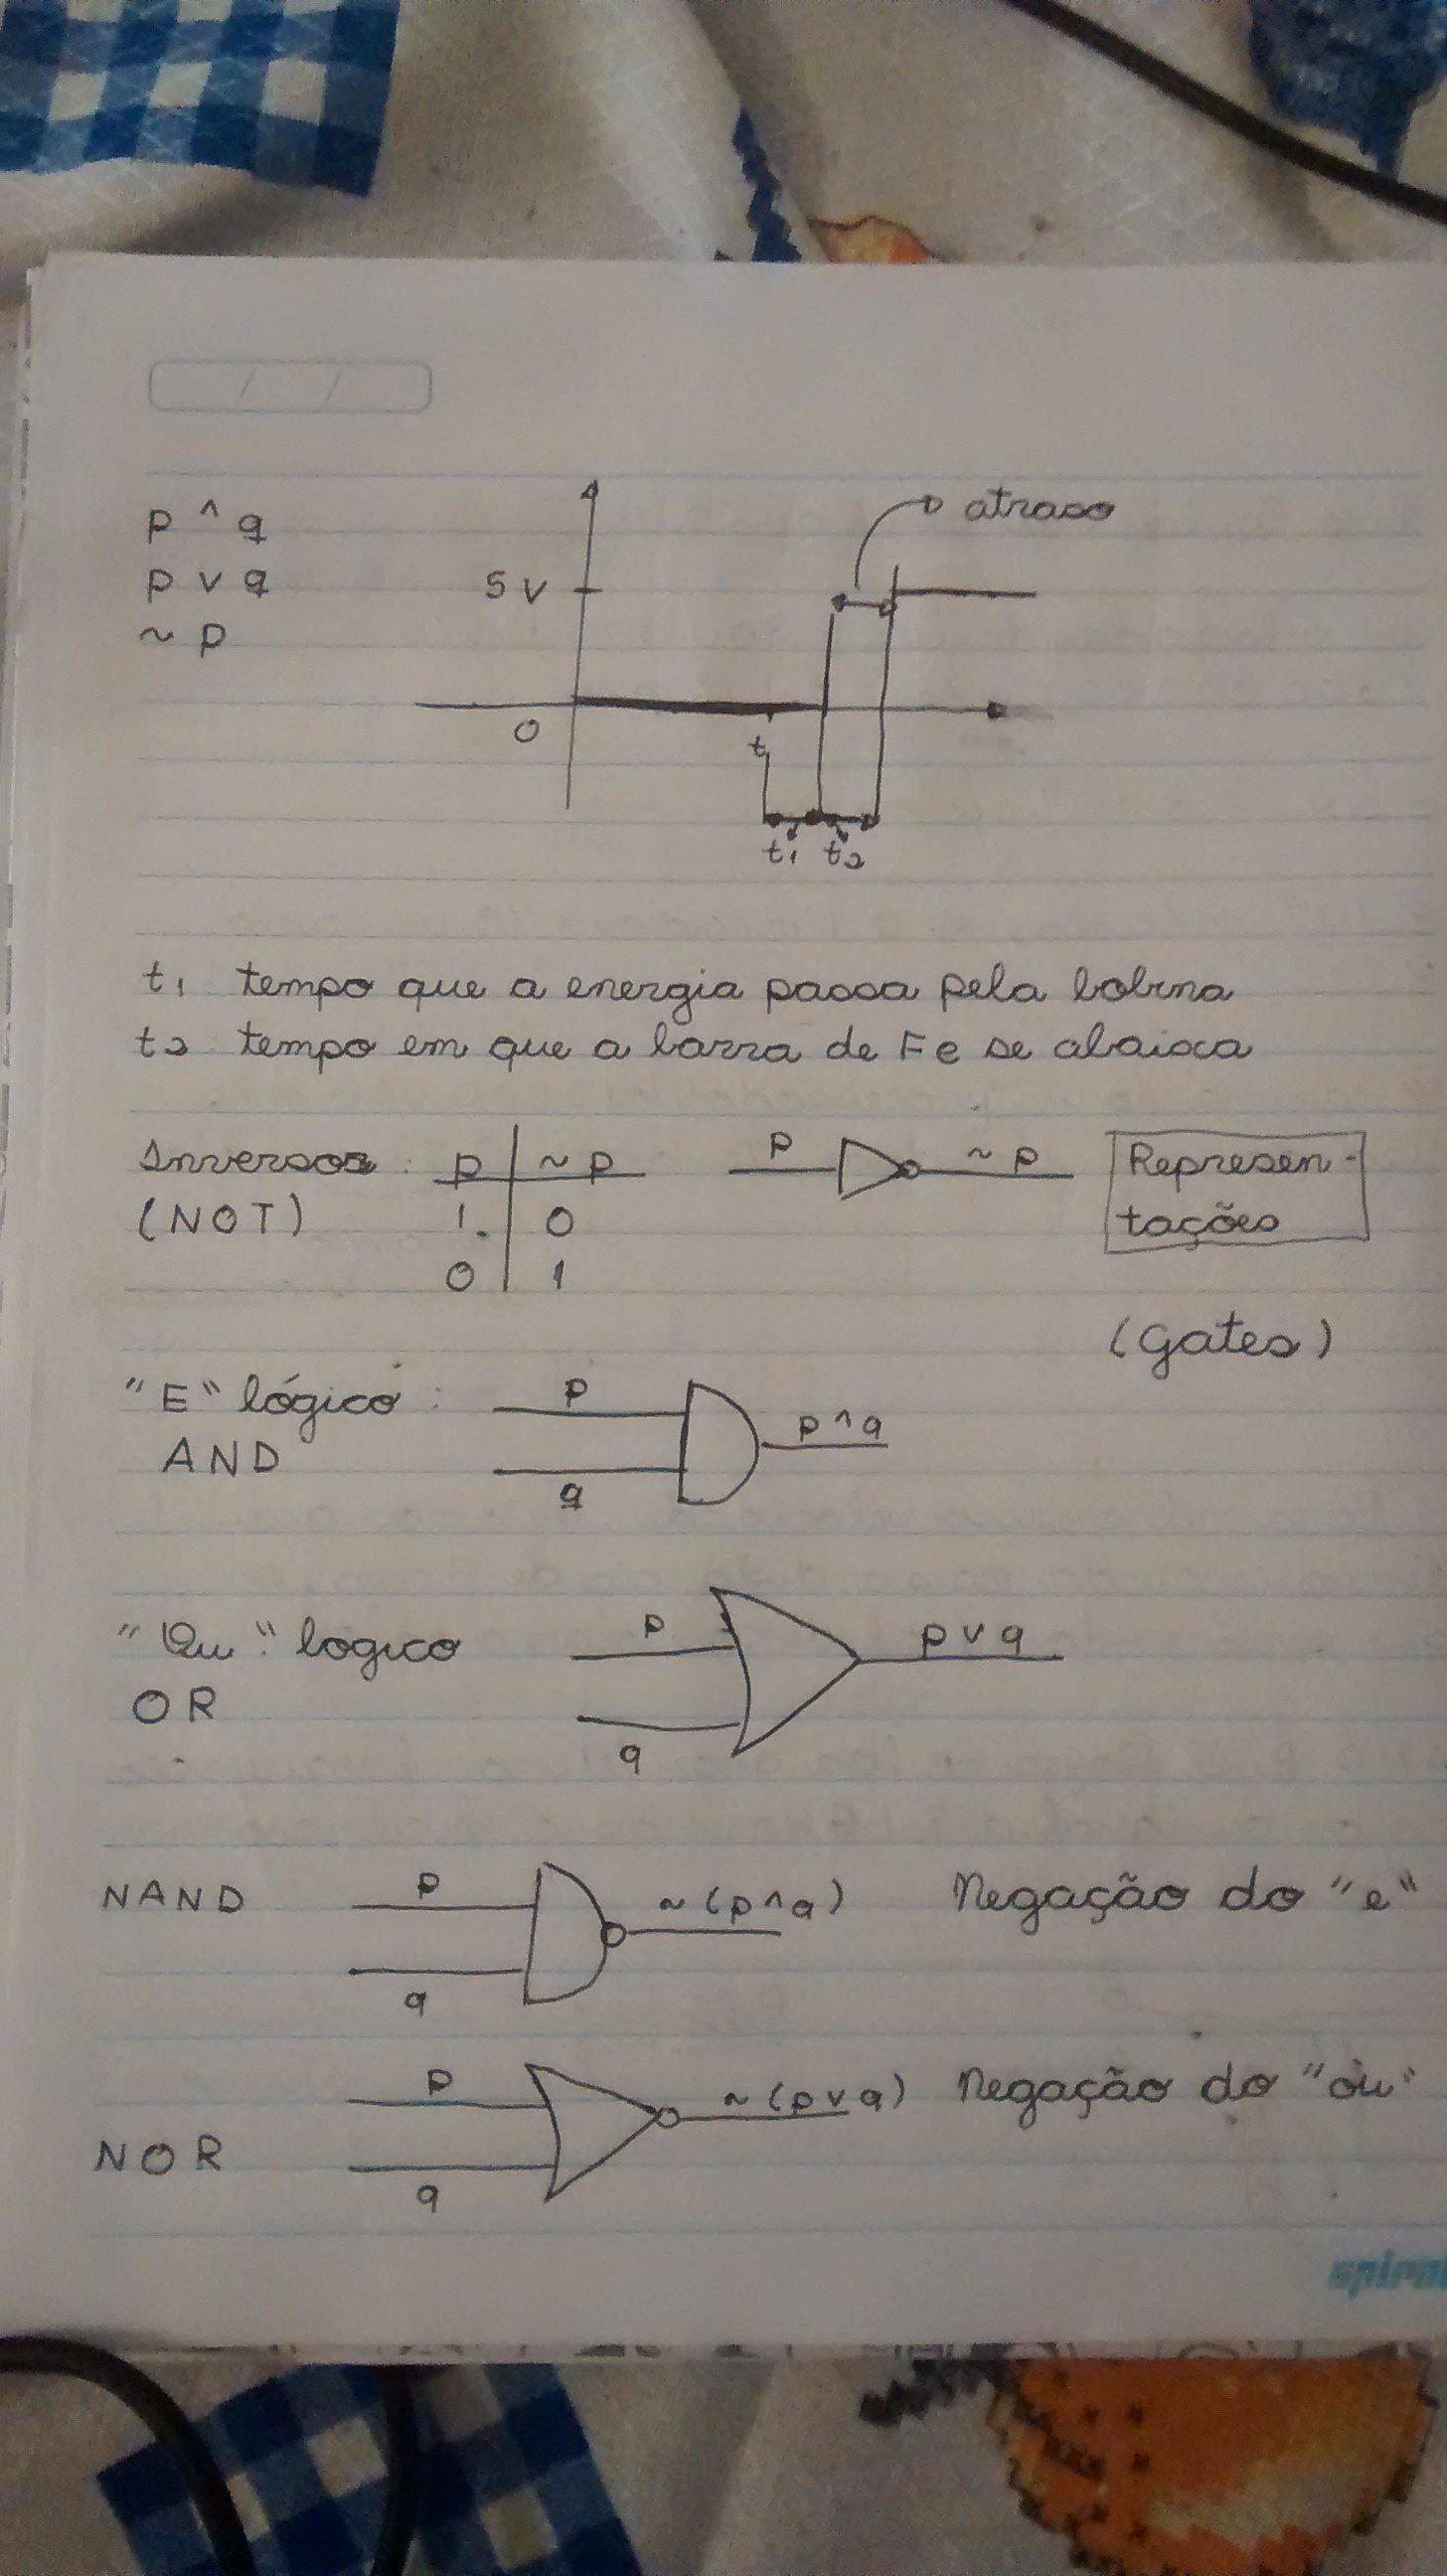 p ^ q
p v q
~ p
atraso
5 V
0
t
t1 t2
t1 tempo que a energia passa pela bobina
t2 tempo em que a barra de Fe se abaixa
Inversor : p ~ p p ~ p Represen-
(NOT) 1 0 tações
0 1
(Gates)
"E" lógico : p p ^ q
AND q
"Ou" logico p p v q
OR q
NAND p ~ (p ^ q) Negação do "e"
q
p ~ (p v q) Negação do "ou"
NOR q